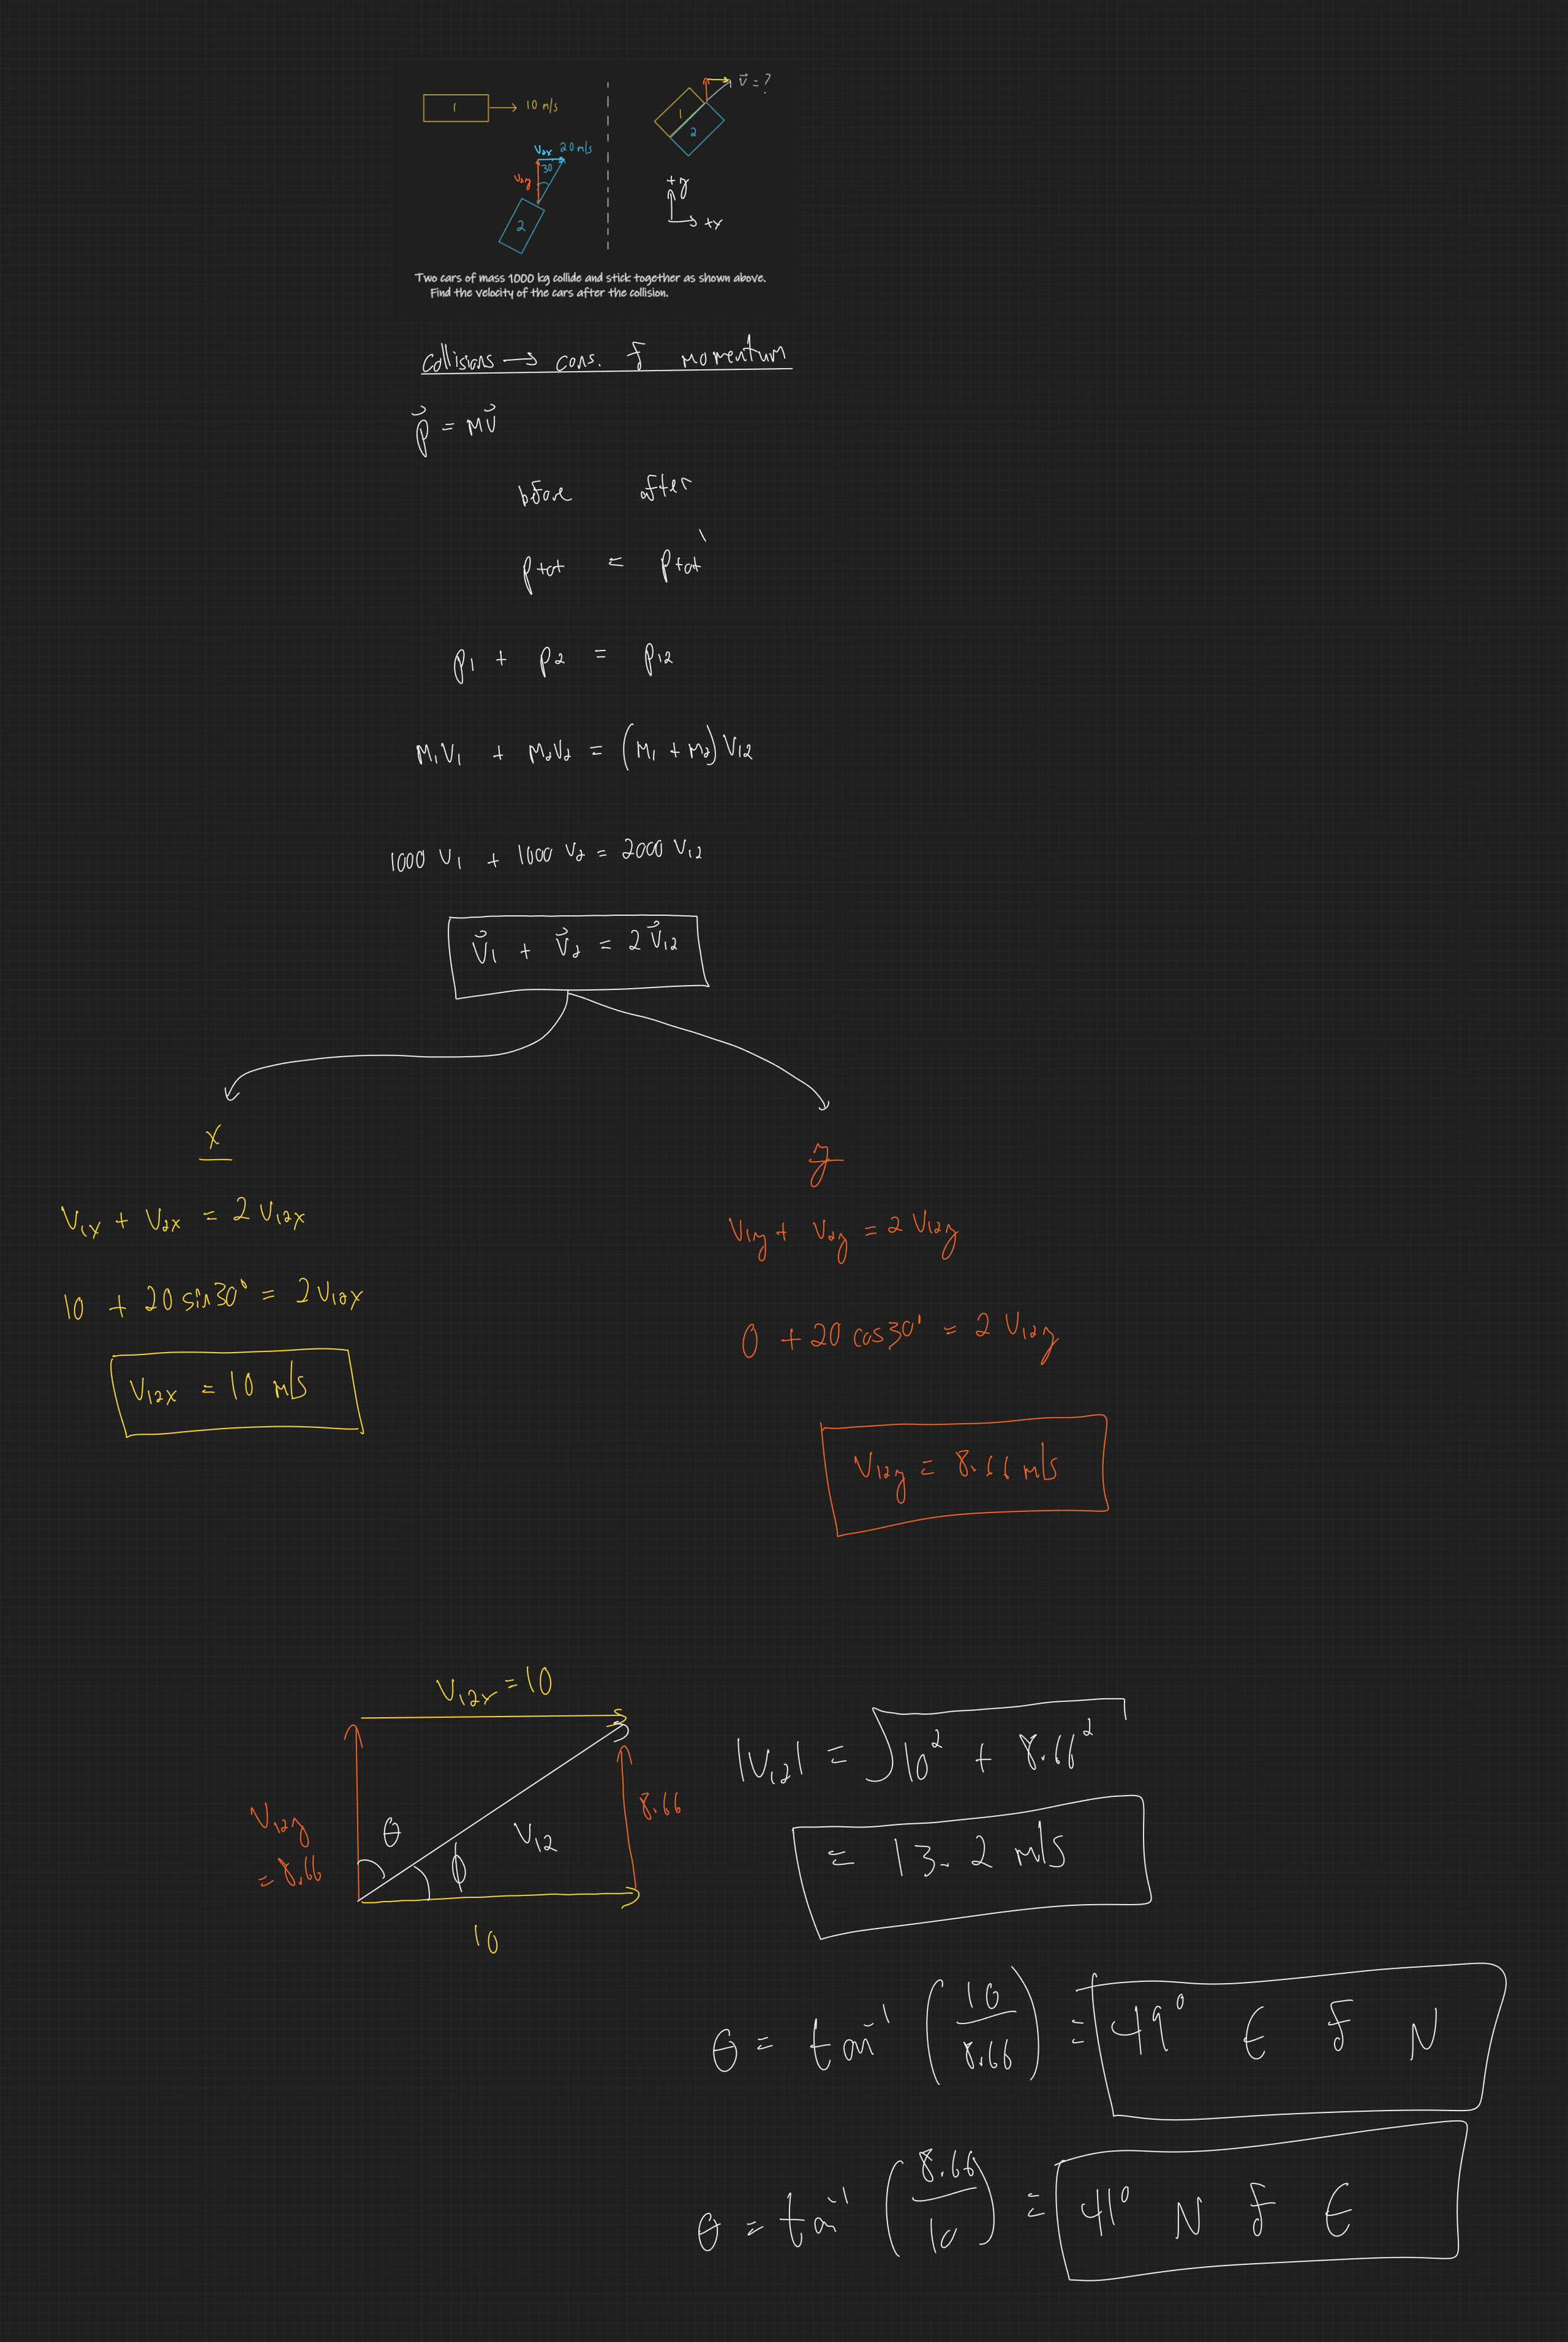 1 → 10 m/s
v⃗ = ?
1
2
V2x 20 m/s
30
V2y
2
+y
+x
Two cars of mass 1000 kg collide and stick together as shown above.
Find the velocity of the cars after the collision.
Collisions → cons. of momentum
p⃗ = mv⃗
before after
Ptot = Ptot'
P1 + P2 = P12
M1V1 + M2V2 = (M1 + M2) V12
1000 V1 + 1000 V2 = 2000 V12
V⃗1 + V⃗2 = 2 V⃗12
x
V1x + V2x = 2 V12x
10 + 20 sin30° = 2 V12x
V12x = 10 m/s
y
V1y + V2y = 2 V12y
0 + 20 cos30° = 2 V12y
V12y = 8.66 m/s
V12x = 10
V12y
= 8.66
θ
ϕ
V12
8.66
10
|V12| = √10² + 8.66²
= 13.2 m/s
θ = tan⁻¹ (10/8.66) = 49° E of N
θ = tan⁻¹ (8.66/10) = 41° N of E